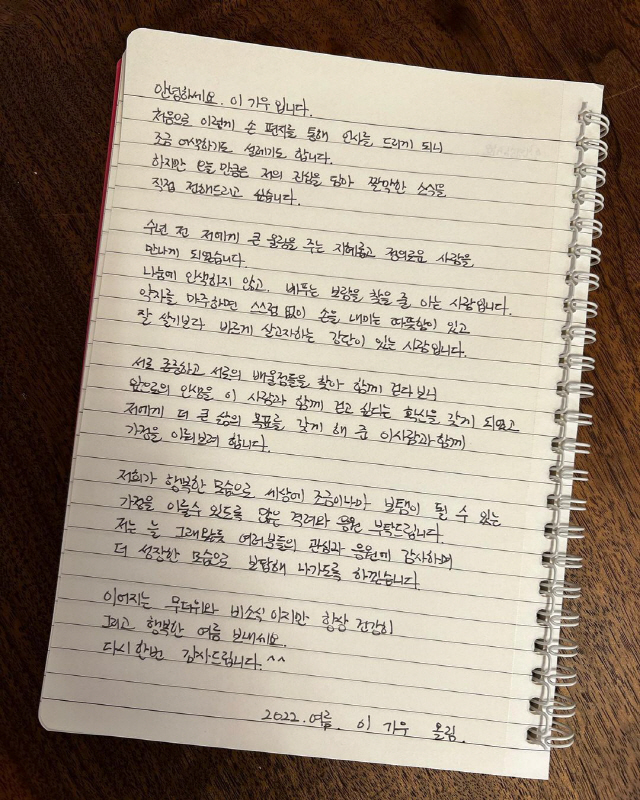 안녕하세요. 이 가우 입니다.
처음으로 이렇게 손 편지를 통해 인사를 드리게 되니
조금 어색하기도 설레기도 합니다.
하지만 오늘 만큼은 저의 진심을 담아 짤막한 소식을
직접 전해드리고 싶습니다.
수년 전 저에게 큰 울림을 주는 지혜롭고 정의로운 사람을
만나게 되었습니다.
나눔에 인색하지 않고, 베푸는 보람을 찾을 줄 아는 사람입니다.
약자를 마주하면 스스럼 없이 손을 내미는 따뜻함이 있고
잘 살기보다 바르게 살고자하는 강단이 있는 사람입니다.
서로 존중하고 서로의 배울점들을 찾아 함께 걷다 보니
앞으로의 인생을 이 사람과 함께 걷고 싶다는 확신을 갖게 되었고
저에게 더 큰 삶의 목표를 갖게 해 준 이사람과 함께
가정을 이뤄보려 합니다.
저희가 행복한 모습으로 세상에 조금이나마 보탬이 될 수 있는
가정을 이룰수 있도록 많은 격려와 응원 부탁드립니다.
저는 늘 그래왔듯 여러분들의 관심과 응원에 감사하며
더 성장한 모습으로 보답해 나가도록 하겠습니다.
이어지는 무더위와 비소식 이지만 항상 건강히
그리고 행복한 여름 보내세요.
다시 한번 감사드립니다.^^
2022.여름. 이 가우 올림.